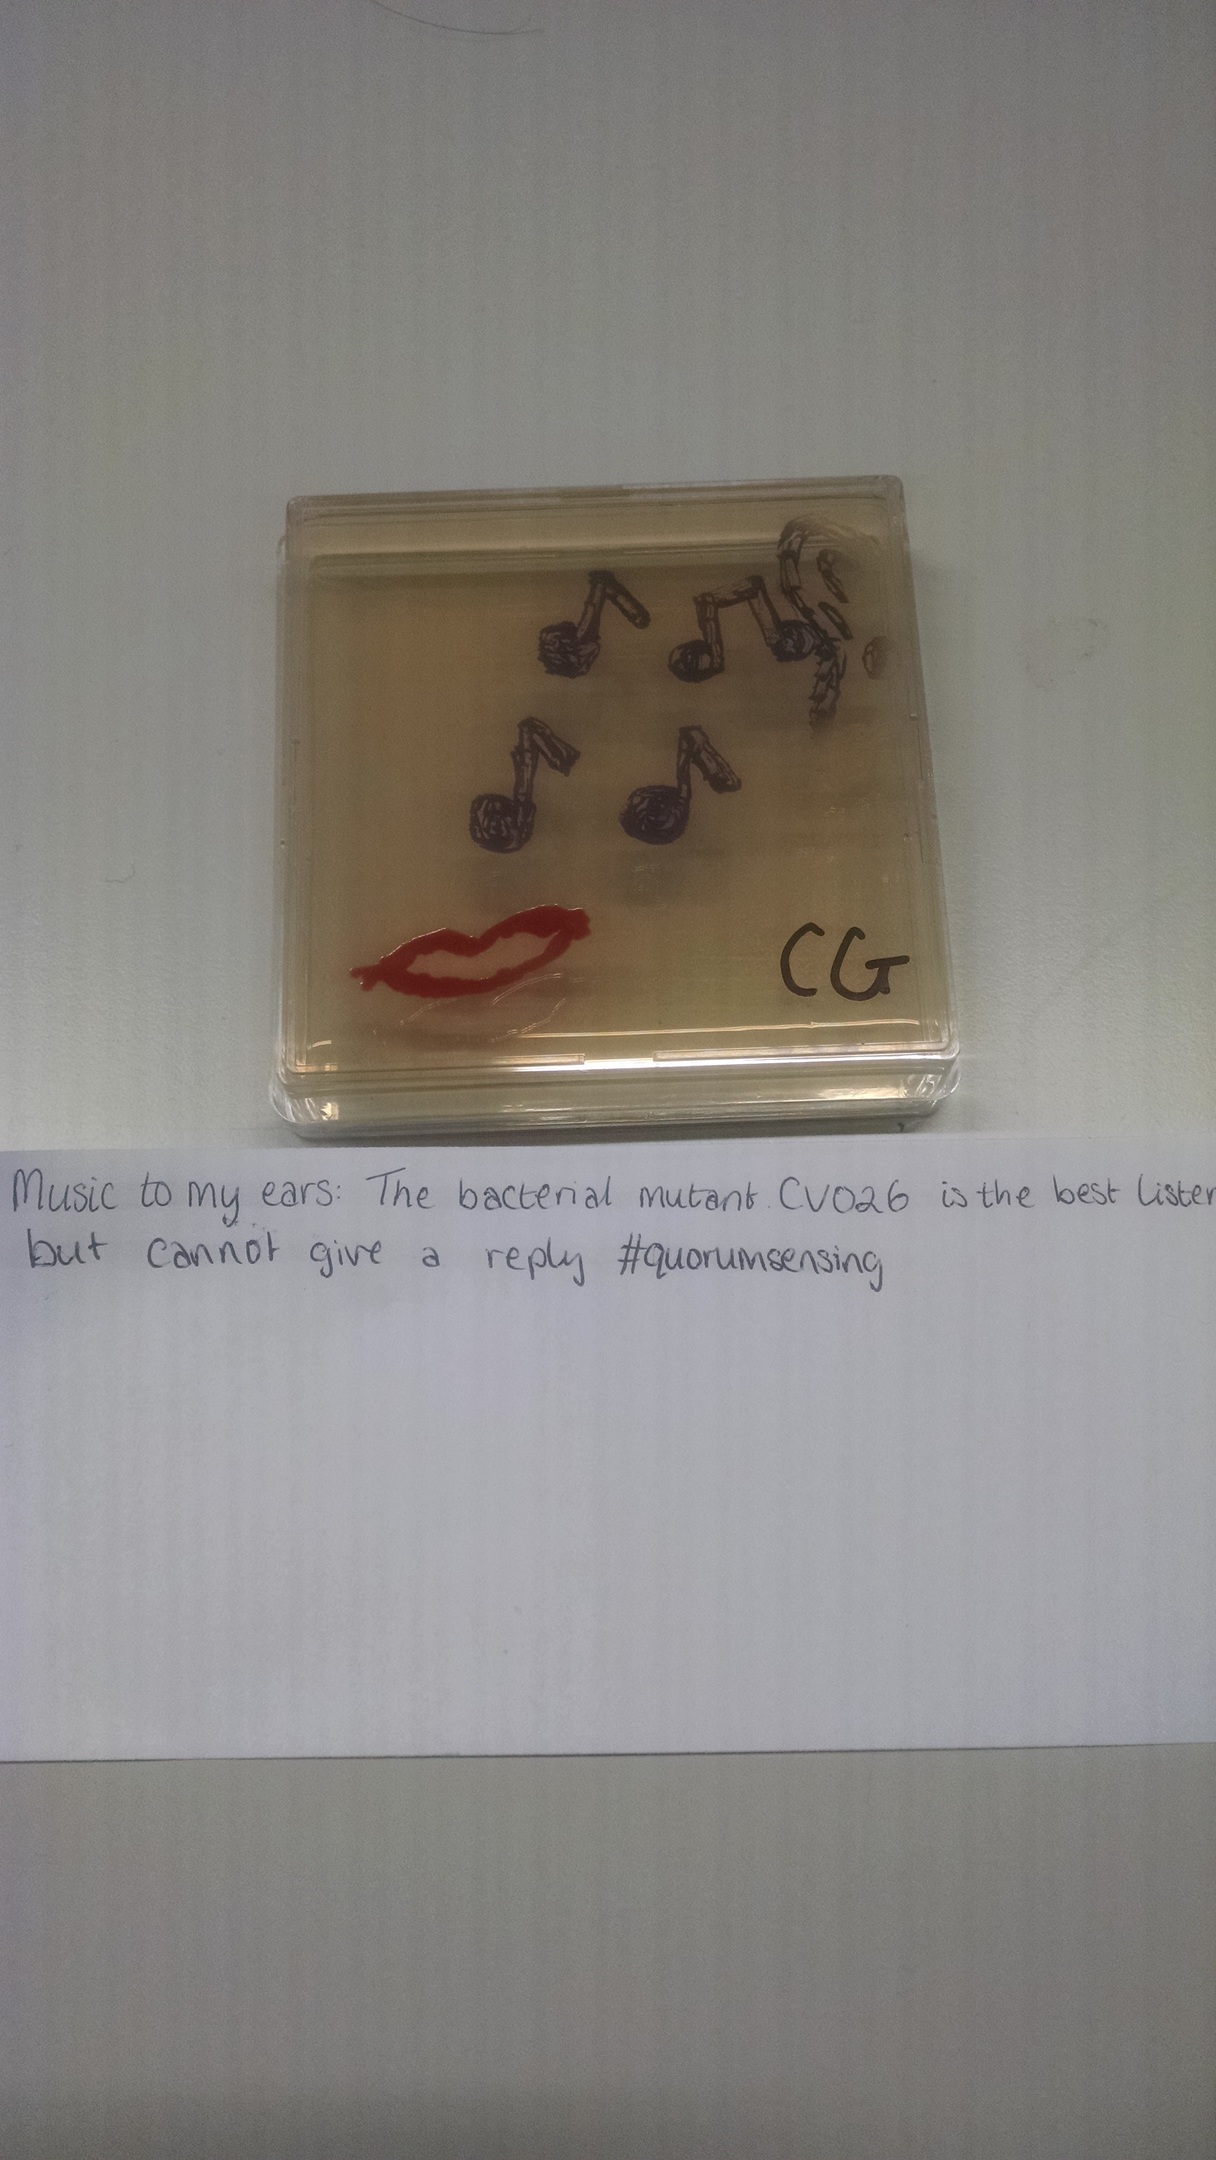 CG
Music to my ears: The bacterial mutant CV026 is the best listen
but cannot give a reply #quorumsensing